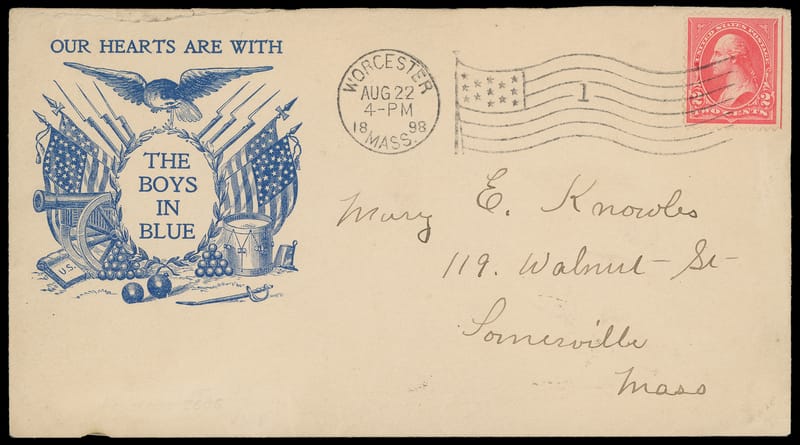 OUR HEARTS ARE WITH
THE
BOYS
IN
BLUE
U.S.
WORCESTER
AUG 22
4-PM
18 98
MASS.
1
UNITED STATES POSTAGE
2 2
TWO CENTS
Mary E. Knowles
119. Walnut St
Somerville
Mass